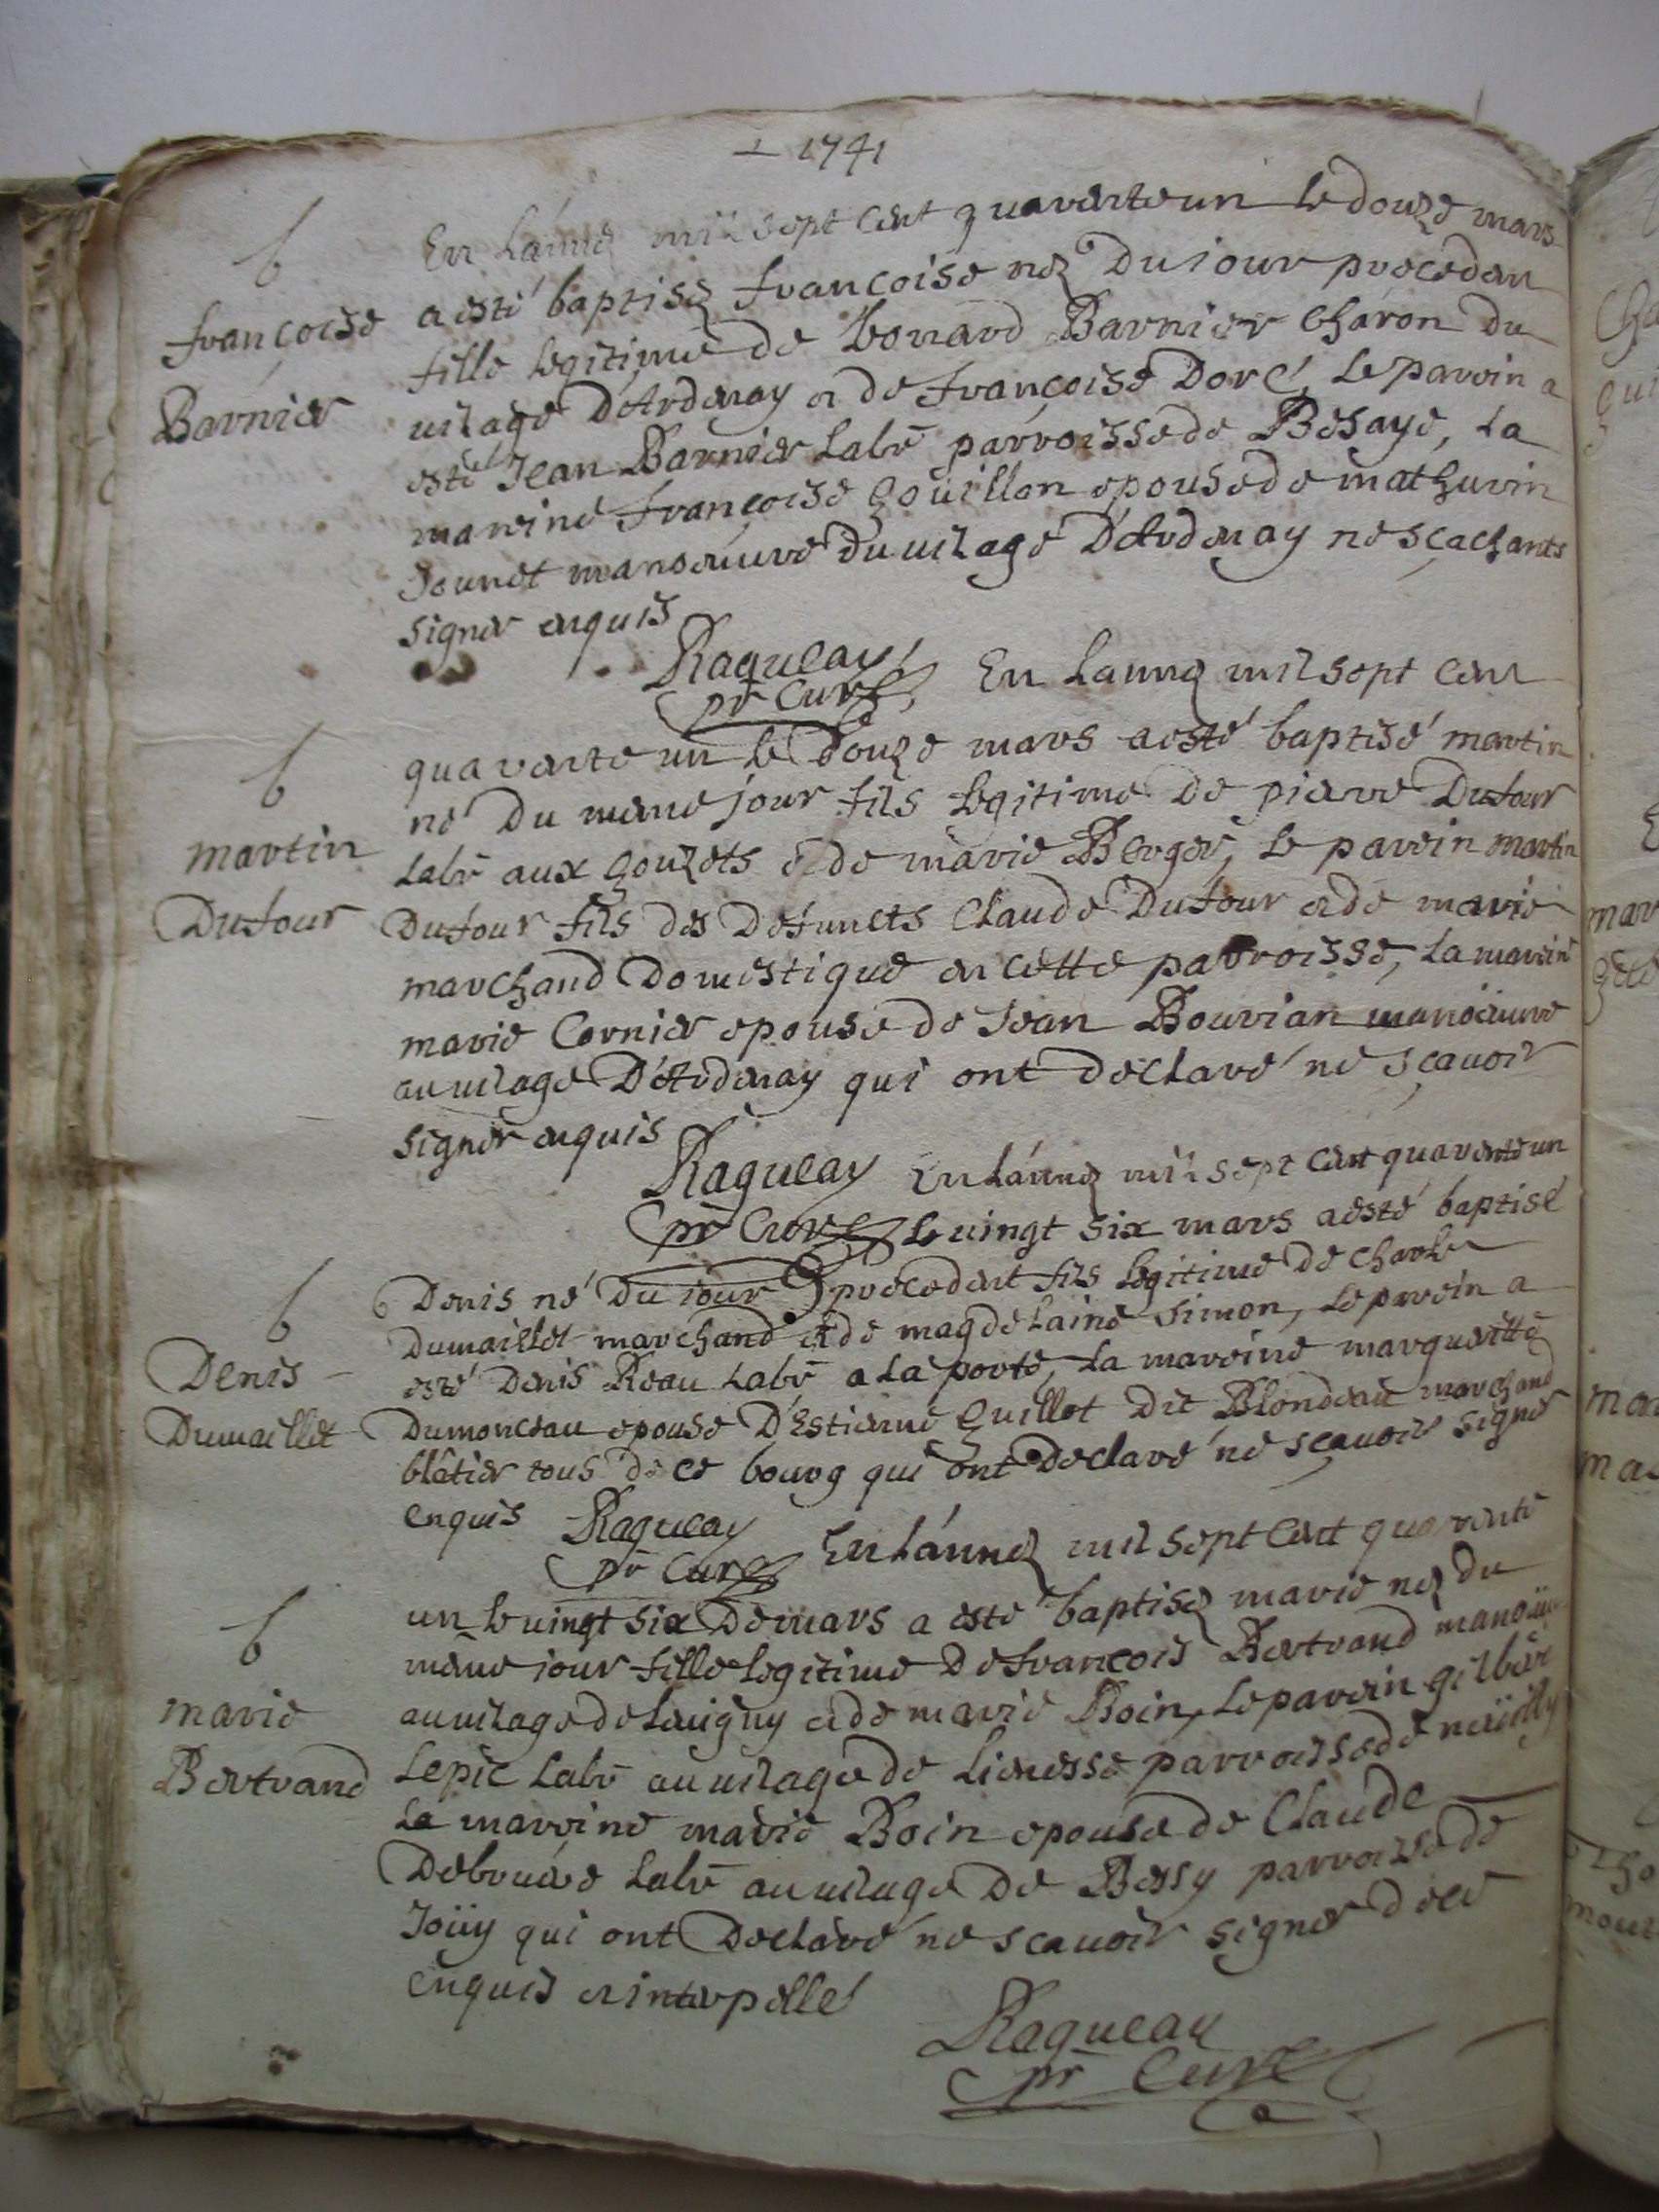 1741
b
françoise
Barnier
En Lánnéé mil sept cent quarante un le douze mars
a esté baptiséé françoise néé Du iour precedan
fille legitime de Leonard Barnier Charon Du
uilage D'Ardenay et de françoise Doré, Le parein a
esté Jean Barnier Labr parroisse de Besaye, La
mareine françoise Gouillon epouse de mathurin
Jounet manoeuure du uilage D'Ardenay ne sçachants
signer enquis
Ragueau
pr Curé
b
martin
Dufour
En Lannéé mil sept cen
quarante un le Douze mars a esté baptisé martin
né Du meme jour fils legitime de pierre Dufour
Labr aux Gouzets et de marie Berger, Le parein martin
Dufour fils des Defuncts Claude Dufour et de marie
marchand Domestique en cette parroisse, La mareine
marie Cornier epouse de Jean Bourian manoeuure
au uilage D'Ardenay qui ont declaré ne sçauoir
signer enquis
Ragueau
pr Curé
b
Denis
Dumaillet
En Lánnéé mil sept cent quarante un
Le uingt six mars a esté baptisé
Denis né Du iour precedent fils legitime de Charle
Dumaillet marchand et de magdelaine Simon, Le parein a
esté Denis Reau Labr a La porte, La mareine margueritte
Dumonceau epouse D'Estienne Guillot Dit Blondeau marchand
blâtier tous de ce bourg qui ont Declaré ne sçauoir signer
enquis
Ragueau
pr Curé
b
marie
Bertrand
En Lánnéé mil sept cent quarante
un Le uingt six De mars a esté baptiséé marie néé du
même iour fille legitime De françois Bertrand manoeuu
au uilage de Leuigny et de marie Boin, Le parein gilber
Lepic Labr au uilage de Lienesse parroisse de neüilly
La mareine marie Boin epouse de Claude
Debruere Labr au uilage De Bessy parroisse de
Joüy qui ont Declaré ne scauoir signer de ce
enquis et interpellé
Ragueau
pr Curé